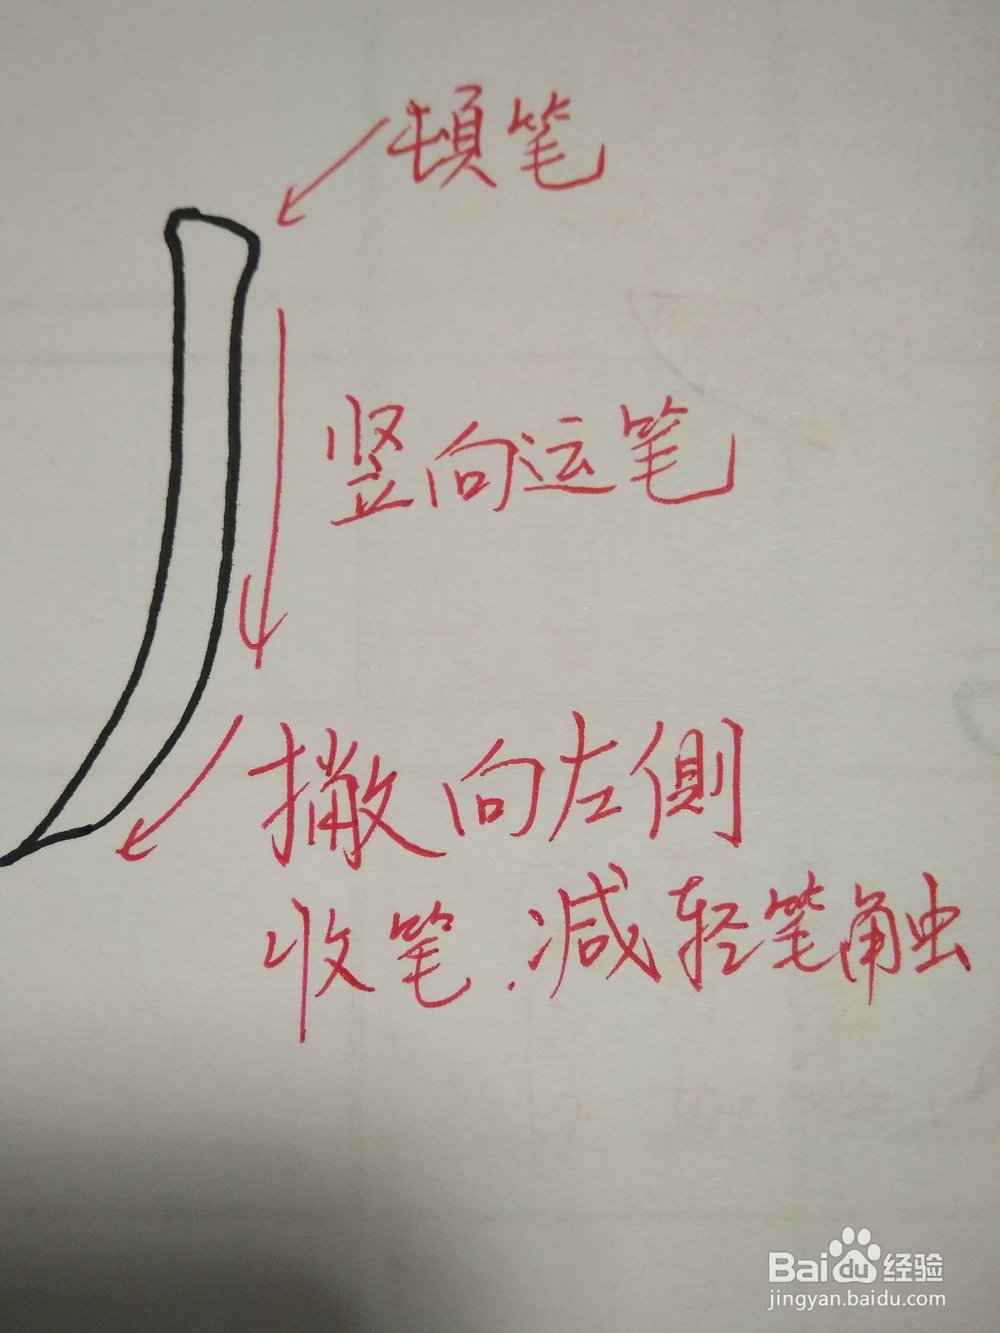 頓笔
竖向运笔
撇向左側
收笔.减轻笔触
Baidu经验
jingyan.baidu.com